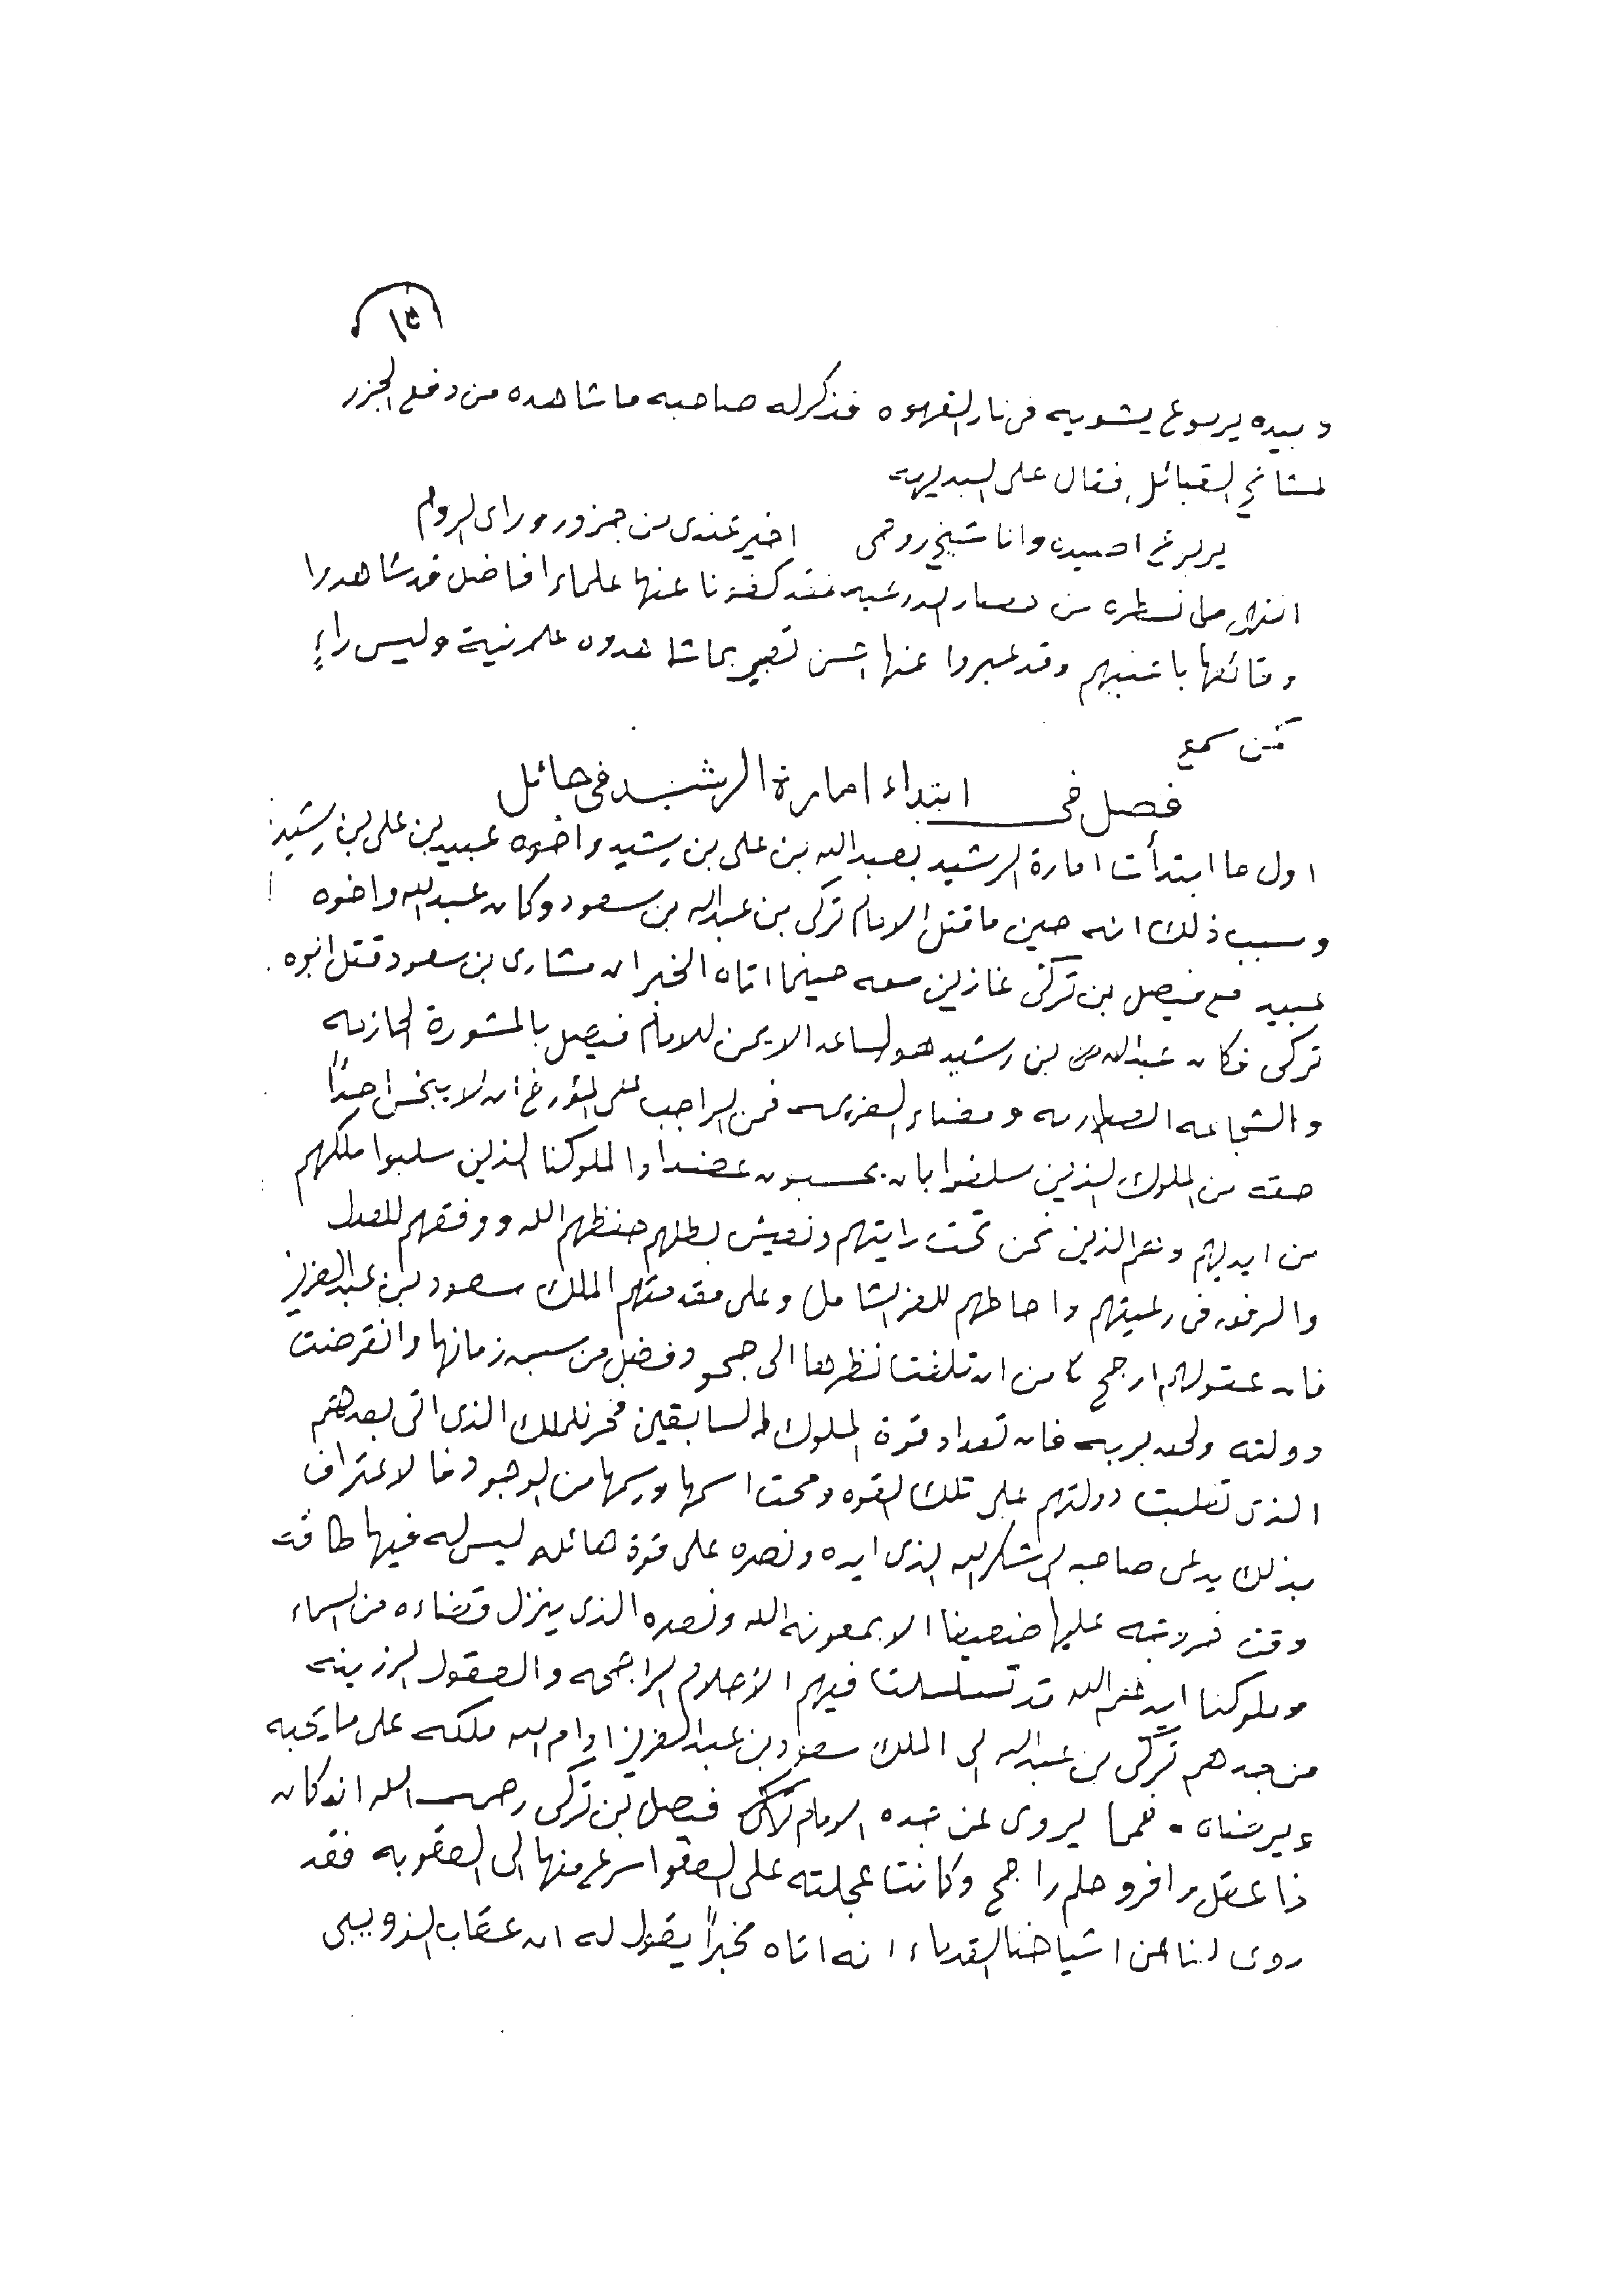 ١٣
وبيده يربوع يشويه في نار القهوه فذكر له صاحبه ما شاهده من دفع الجزر
لمشائخ القبائل فقال على البديهه
يربوع اصيده وانا شيخ روحي اخير عندي من جزور وراى الروم
انتهى ما نسطره من الدرعيه فقد كفونا عنها علماء افاضل قد شاهدوا
وقائعها باعينهم وقد عبروا عنها احسن تعبير بما شاهدوه علانية وليس راءٍ
كمن سمع
فصل في ابتداء امارة الرشيد في حائل
اول ما ابتدأت امارة الرشيد بعبدالله بن علي بن رشيد واخوه عبيد بن علي بن رشيد
وسبب ذلك انه حين ما قتل الامام تركي بن عبدالله بن سعود وكان عبدالله واخوه
عبيد مع فيصل بن تركي غازين معه حينما اتاه الخبر ان مشارى بن سعود قتل ابوه
تركي فكان عبدالله بن رشيد هو الساعد الايمن للامام فيصل بالمشورة الحازمه
والشجاعه الصارمه ومضاء العزيمه فمن الواجب على المؤرخ ان لا يبخس احدًا
حقه من الملوك الذين سلفوا بان يحسبون عضدا والملوكنا الذين سلبوا ملكهم
من ايديهم ونعم الذين نحن تحت رايتهم ونعيش بظلهم حفظهم الله ووفقهم للعدل
والرفق في رعيتهم واحاطهم للعز الشامل وعلى مقدمتهم الملك سعود بن عبدالعزيز
فان عقولهم ارجح من ان تلفت نظرها الى محو وفضل من سبق زمانها وانقرضت
دولته ولحق بربه فان تعداد قوة الملوك السابقين فخر للملك الذي اتى بعدهم
الذي تغلبت دولتهم على تلك القوه ومحت اسمها ورسمها من الوجود فالاعتراف
بذلك يدعى صاحبه الى شكر الله الذي ايده ونصره على قوة هائله ليس له فيها طاقت
وقت خروجه عليها ضعيفا الا بمعونة الله ونصره الذي ينزل قضاءه من السماء
وملوكنا ايدهم الله قد تسلسلت فيهم الأحلام الراجحه والعقول الرزينه
من جدهم تركي بن عبدالله الى الملك سعود بن عبدالعزيز ادام الله ملكه على ما يحبه
ويرضاه . فمما يروى عن جده الامام فيصل بن تركي رحمه الله انه كان
ذا عقل وافر وحلم راجح وكانت عجلته على العفو اسرع منها الى العقوبه فقد
روى لنا عن اشياخنا القدماء انه اتاه مخبراً يقول له ان عقاب الذويبي